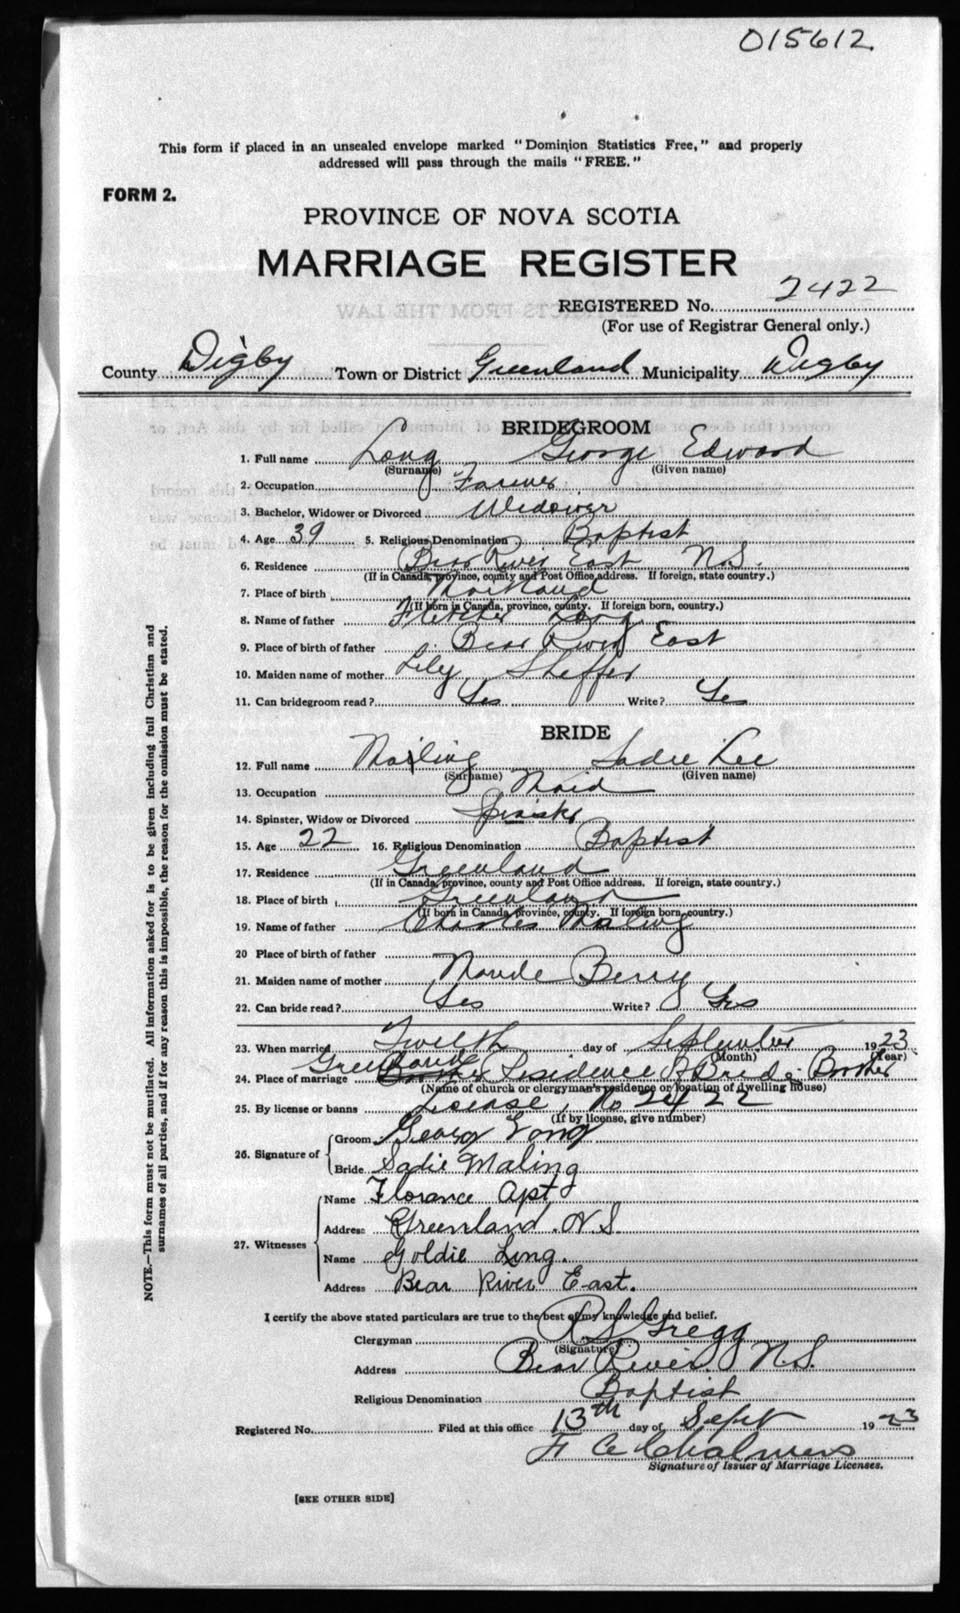 015612
This form if placed in an unsealed envelope marked "Dominion Statistics Free," and properly
addressed will pass through the mails "FREE."
FORM 2.
PROVINCE OF NOVA SCOTIA
MARRIAGE REGISTER
REGISTERED No. 2422
(For use of Registrar General only.)
County Digby Town or District Greenland Municipality Digby
BRIDEGROOM
1. Full name Long George Edward
(Surname) (Given name)
2. Occupation Farmer
3. Bachelor, Widower or Divorced Widower
4. Age 39 5. Religious Denomination Baptist
6. Residence Bear River East N.S.
(If in Canada, province, county and Post Office address. If foreign, state country.)
7. Place of birth Maitland
(If born in Canada, province, county. If foreign born, country.)
8. Name of father Fletcher Long
9. Place of birth of father Bear River East
10. Maiden name of mother Lily Sheffer
11. Can bridegroom read? Yes Write? Yes
BRIDE
12. Full name Mailing Sadie Lee
(Surname) (Given name)
13. Occupation Maid
14. Spinster, Widow or Divorced Spinster
15. Age 22 16. Religious Denomination Baptist
17. Residence Greenland
(If in Canada, province, county and Post Office address. If foreign, state country.)
18. Place of birth Greenland
(If born in Canada, province, county. If foreign born, country.)
19. Name of father Charles Maling
20 Place of birth of father
21. Maiden name of mother Maude Berry
22. Can bride read? Yes Write? Yes
23. When married Twelth day of September 1923
(Month) (Year)
Greenland
24. Place of marriage Residence of Bride Brother
(Name of church or clergyman's residence or location of dwelling house)
25. By license or banns License, No 2422
(If by license, give number)
26. Signature of Groom George Long
Bride Sadie Maling
27. Witnesses Name Florance Apt
Address Greenland. N S.
Name Goldie Long.
Address Bear River East.
I certify the above stated particulars are true to the best of my knowledge and belief.
Clergyman R S Gregg
(Signature)
Address Bear River. N.S.
Religious Denomination Baptist
Registered No. Filed at this office 13th day of Sept 1923
F C Chalmers
Signature of Issuer of Marriage Licenses.
[SEE OTHER SIDE]
NOTE.—This form must not be mutilated. All information asked for is to be given including full Christian and
surnames of all parties, and if for any reason this is impossible, the reason for the omission must be stated.